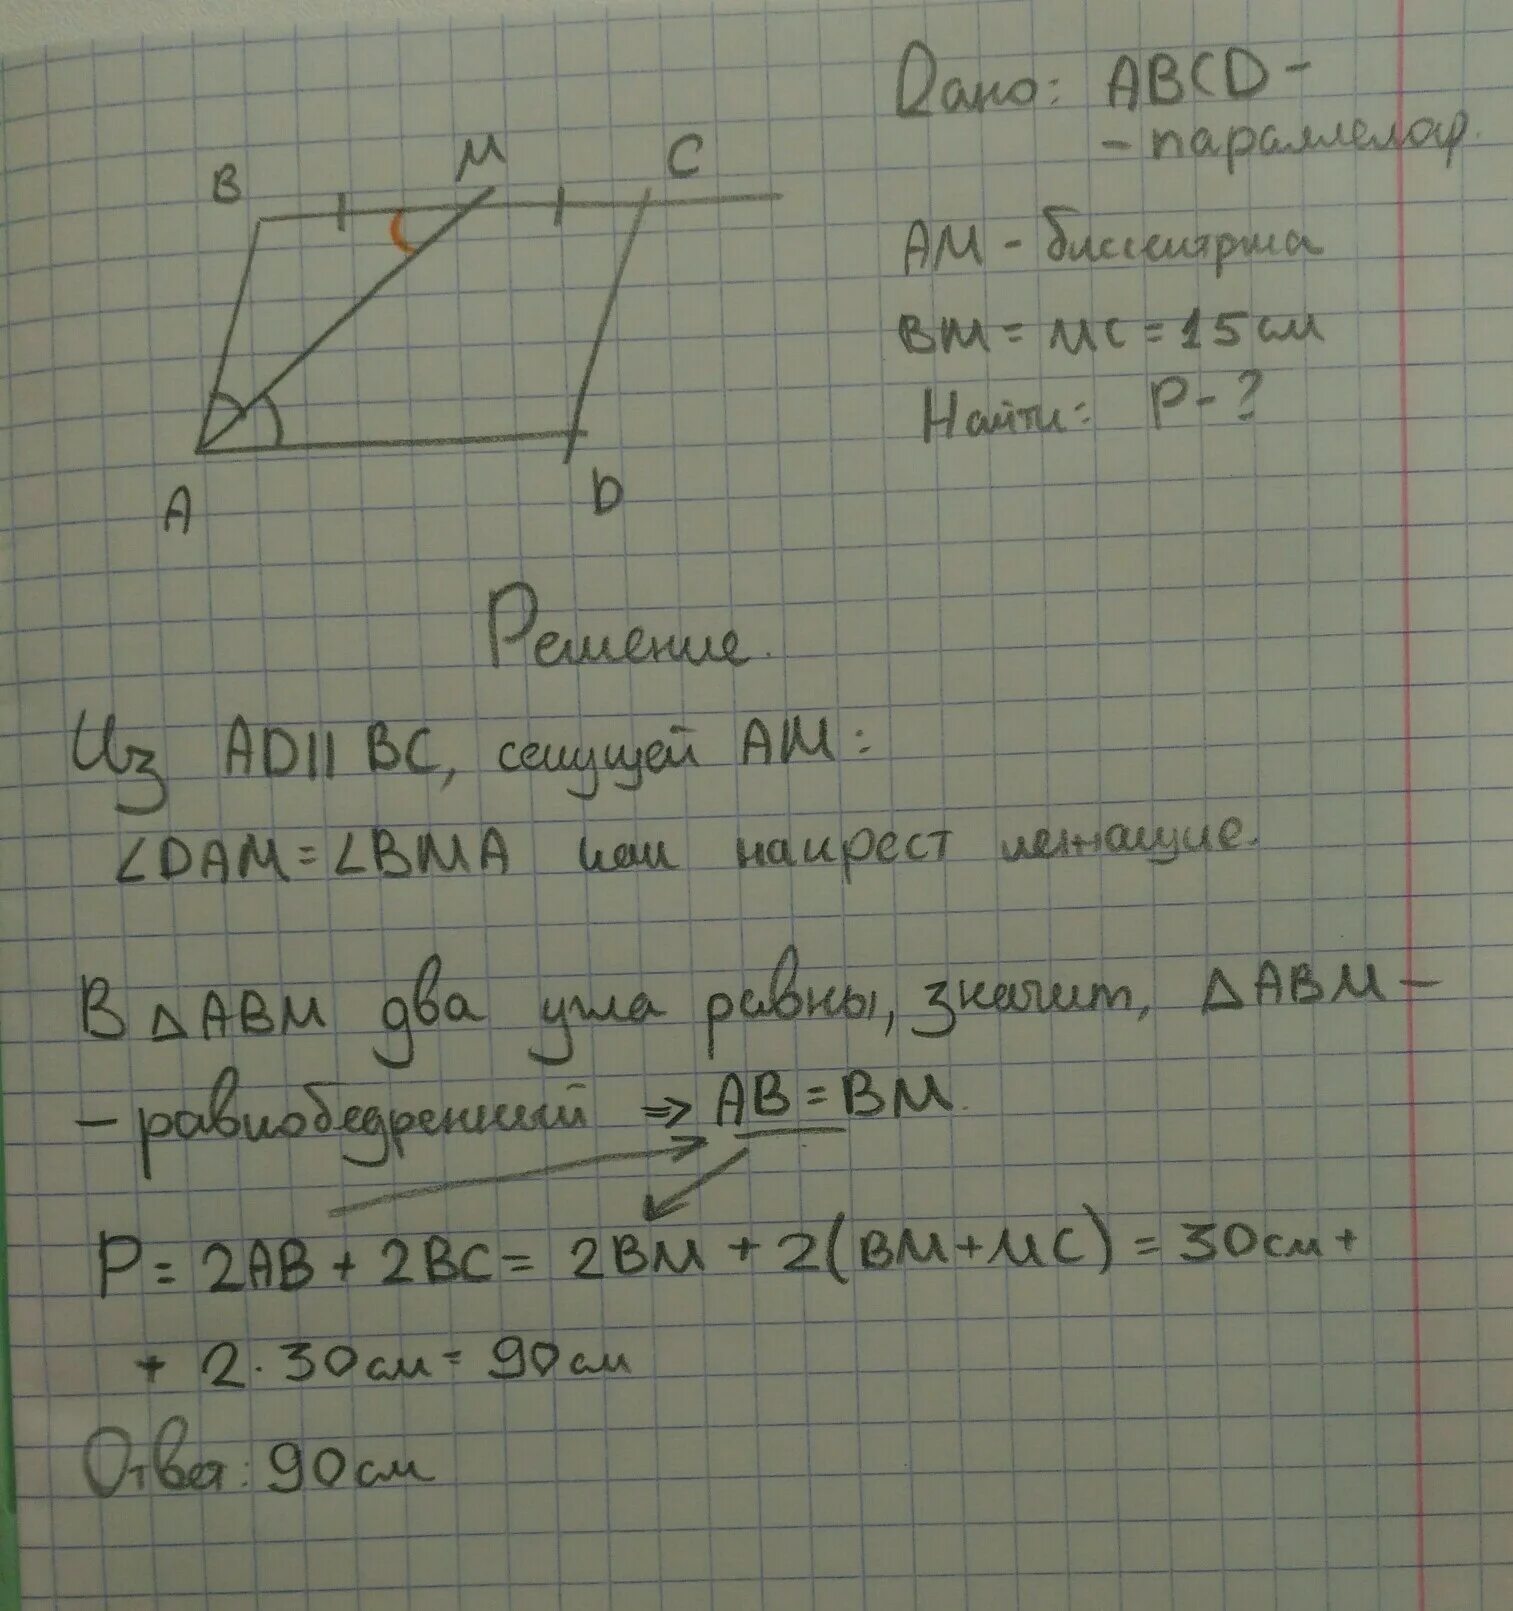 B
M
C
A
D
Дано: ABCD -
- параллелогр.
AM - биссектриса
BM = MC = 15 см
Найти: P - ?
Решение.
Из AD || BC, секущей AM:
∠DAM = ∠BMA как накрест лежащие.
В △ABM два угла равны, значит, △ABM -
- равнобедренный ⇒ AB = BM.
P = 2AB + 2BC = 2BM + 2(BM + MC) = 30 см +
+ 2 · 30 см = 90 см
Ответ: 90 см